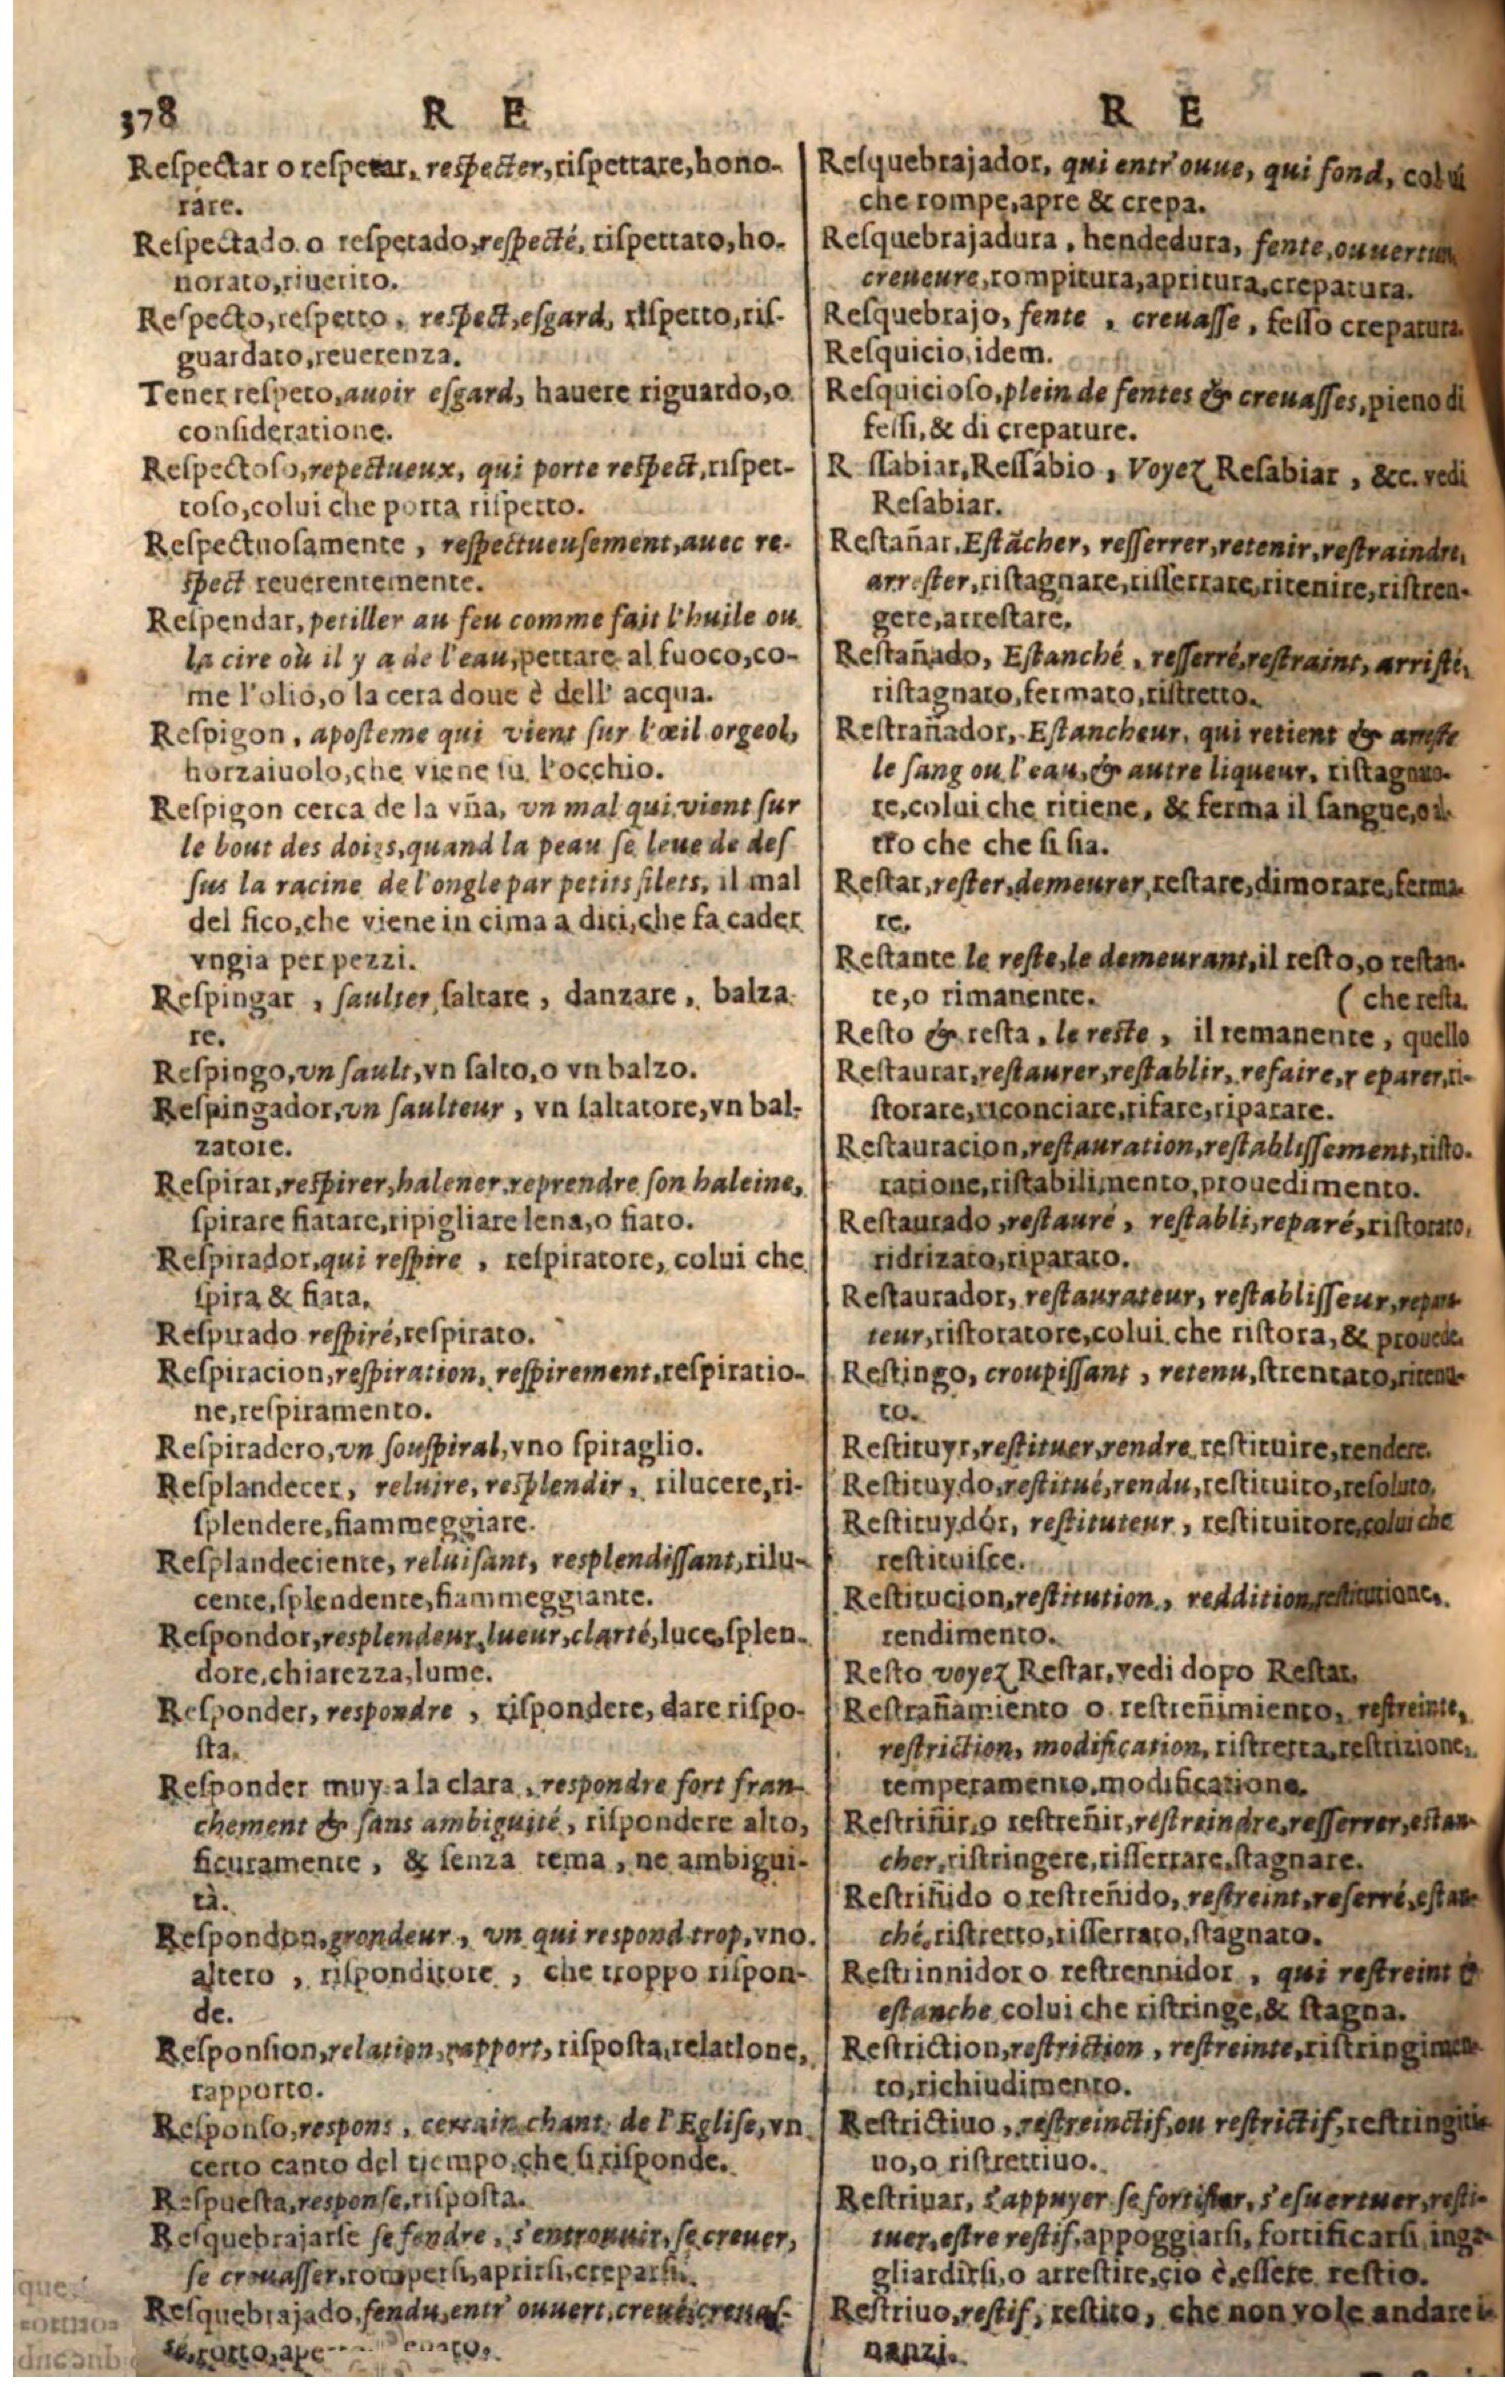 378 R E
Respectar o respetar, respecter, rispettare, hono-
rare.
Respectado o respetado, respecté, rispettato, ho-
norato, riuerito.
Respecto, respetto, respect, esgard, rispetto, ris-
guardato, reuerenza.
Tener respeto, auoir esgard, hauere riguardo, o
consideratione.
Respectoso, repectueux, qui porte respect, rispet-
toso, colui che porta rispetto.
Respectuosamente, respectueusement, auec re-
spect reuerentemente.
Respendar, petiller au feu comme fait l'huile ou
la cire où il y a de l'eau, pettare al fuoco, co-
me l'olio, o la cera doue è dell' acqua.
Respigon, aposteme qui vient sur l'œil orgeol,
horzaiuolo, che viene su l'occhio.
Respigon cerca de la vña, vn mal qui vient sur
le bout des doigs, quand la peau se leue de des
sus la racine de l'ongle par petits filets, il mal
del fico, che viene in cima a diti, che fa cader
vngia per pezzi.
Respingar, saulter saltare, danzare, balza
re.
Respingo, vn sault, vn salto, o vn balzo.
Respingador, vn saulteur, vn saltatore, vn bal-
zatore.
Respirar, respirer, halener, reprendre son haleine,
spirare fiatare, ripigliare lena, o fiato.
Respirador, qui respire, respiratore, colui che
spira & fiata.
Respirado respiré, respirato.
Respiracion, respiration, respirement, respiratio-
ne, respiramento.
Respiradero, vn souspiral, vno spiraglio.
Resplandecer, reluire, resplendir, rilucere, ri-
splendere, fiammeggiare.
Resplandeciente, reluisant, resplendissant, rilu-
cente, splendente, fiammeggiante.
Respondor, resplendeur, lueur, clarté, luce, splen-
dore, chiarezza, lume.
Responder, respondre, rispondere, dare rispo-
sta.
Responder muy a la clara, respondre fort fran-
chement & sans ambiguité, rispondere alto,
ficuramente, & senza tema, ne ambigui-
tà.
Respondon, grondeur, vn qui respond trop, vno
altero, risponditore, che troppo rispon-
de.
Responsion, relation, rapport, risposta, relatione,
rapporto.
Responso, respons, certain chant de l'Eglise, vn
certo canto del tiempo, che si risponde.
Respuesta, response, risposta.
Resquebrajarse se fendre, s'entrouuir, se creuer,
se creuasser, rompersi, aprirsi, creparsi.
Resquebrajado, fendu, entr' ouuert, creué, creuas-
sé, rotto,
R E
Resquebrajador, qui entr' ouue, qui fond, colui
che rompe, apre & crepa.
Resquebrajadura, hendedura, fente, ouuerture,
creueure, rompitura, apritura, crepatura.
Resquebrajo, fente, creuasse, fesso crepatura.
Resquicio, idem.
Resquicioso, plein de fentes & creuasses, pieno di
fessi, & di crepature.
R ssabiar, Ressabio, Voyez Resabiar, &c. vedi
Resabiar.
Restañar, Estãcher, resserrer, retenir, restraindre,
arrester, ristagnare, risserrare, ritenire, ristren-
gere, arrestare.
Restañado, Estanché, resserré, restraint, arristé,
ristagnato, fermato, ristretto.
Restrañador, Estancheur, qui retient & arreste
le sang ou l'eau, & autre liqueur, ristagnato-
re, colui che ritiene, & ferma il sangue, o al-
tro che che si sia.
Restar, rester, demeurer, restare, dimorare, ferma-
re.
Restante le reste, le demeurant, il resto, o restan-
te, o rimanente. ( che resta.
Resto & resta, le reste, il remanente, quello
Restaurar, restaurer, restablir, refaire, r eparer, ri-
storare, riconciare, rifare, riparare.
Restauracion, restauration, restablissement, risto-
ratione, ristabilimento, prouedimento.
Restaurado, restauré, restabli, reparé, ristorato,
ridrizato, riparato.
Restaurador, restaurateur, restablisseur, repara-
teur, ristoratore, colui che ristora, & prouede.
Restingo, croupissant, retenu, strentato, ritenu-
to.
Restituyr, restituer, rendre restituire, rendere.
Restituydo, restitué, rendu, restituito, resoluto.
Restituydór, restituteur, restituitore, colui che
restituisce.
Restitucion, restitution, reddition, restitutione,
rendimento.
Resto voyez Restar, vedi dopo Restar.
Restrañamiento o restreñimiento, restreinte,
restriction, modification, ristretta, restrizione,
temperamento, modificatione.
Restriñir, o restreñir, restreindre, resserrer, estan-
cher, ristringere, risserrare, stagnare.
Restriñido o restreñido, restreint, reserré, estan-
ché, ristretto, risserrato, stagnato.
Restrinnidor o restrennidor, qui restreint &
estanche colui che ristringe, & stagna.
Restriction, restriction, restreinte, ristringimen-
to, richiudimento.
Restrictiuo, restreinctif, ou restrictif, restringiti-
uo, o ristrettiuo.
Restriuar, s'appuyer se fortifier, s'esuertuer, resti-
tuer, estre restif, appoggiarsi, fortificarsi inga-
gliardirsi, o arrestire, cio è, essere restio.
Restriuo, restif, restito, che non vole andare i-
nanzi.